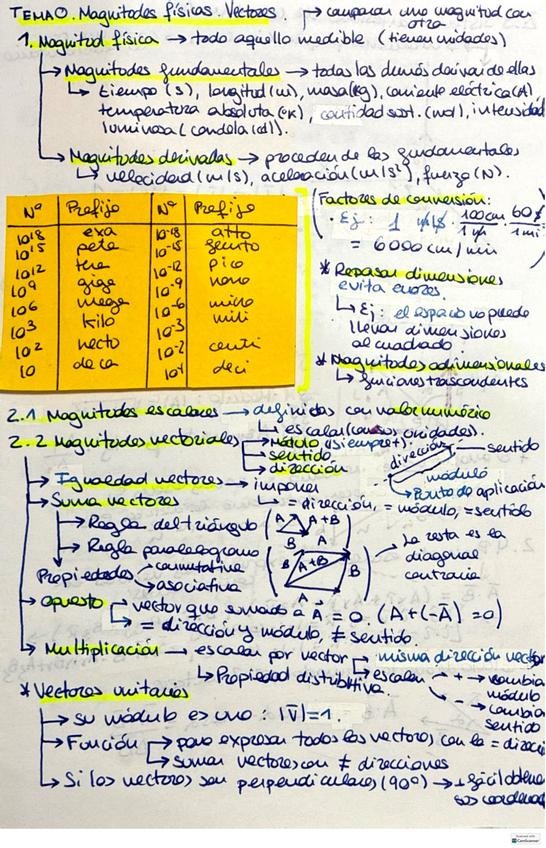 TEMA 0. Magnitudes físicas. Vectores. → comparar una magnitud con otra
1. Magnitud física → todo aquello medible (tienen unidades)
→ Magnitudes fundamentales → todas las demás derivan de ellas
↳ tiempo (s), longitud (m), masa (kg), corriente eléctrica (A),
temperatura absoluta (ºK), cantidad sust. (mol), intensidad
luminosa (candela (cd)).
→ Magnitudes derivadas → proceden de las fundamentales
↳ velocidad (m/s), aceleración (m/s²), fuerza (N).
Nº Prefijo Nº Prefijo
10^18 exa 10^-18 atto
10^15 peta 10^-15
10^12 tera 10^-12 pico
10^9 giga 10^-9 nano
10^6 mega 10^-6 micro
10^3 kilo 10^-3 mili
10^2 hecto 10^-2 centi
10 deca deci
Factores de conversión:
· Ej: 1 m/s · 100cm/1m · 60s/1mi
= 6000 cm/min
* Repasar dimensiones
evita errores.
↳ Ej: el espacio no puede
llevar dimensiones
al cuadrado.
* Magnitudes adimensionales
↳ funciones trascendentes
2.1 Magnitudes escalares → definidas con valor numérico
↳ escalar (con sus unidades).
2.2 Magnitudes vectoriales → módulo (siempre +).
→ sentido
→ dirección
dirección
sentido
módulo
Punto de aplicación
→ Igualdad vectores → imponer
↳ = dirección, = módulo, = sentido
→ Suma vectores
→ Regla del triángulo (A A+B B)
→ Regla paralelogramo (B A+B B A)
→ La resta es la
diagonal
contraria
Propiedades → conmutativa
→ asociativa
→ opuesto → vector que sumado a A = 0. (A+(-A) = 0)
→ = dirección y módulo, ≠ sentido.
→ Multiplicación → escalar por vector → misma dirección vector
↳ Propiedad distributiva.
→ escalar → + → cambia
módulo
→ - → cambia
sentido
* Vectores unitarios
→ su módulo es uno: |V|=1.
→ Función → para expresar todos los vectores con la = direcci
→ sumar vectores con ≠ direcciones
→ Si los vectores son perpendiculares (90º) → + fácil obtene
sus coordenad
CamScanner